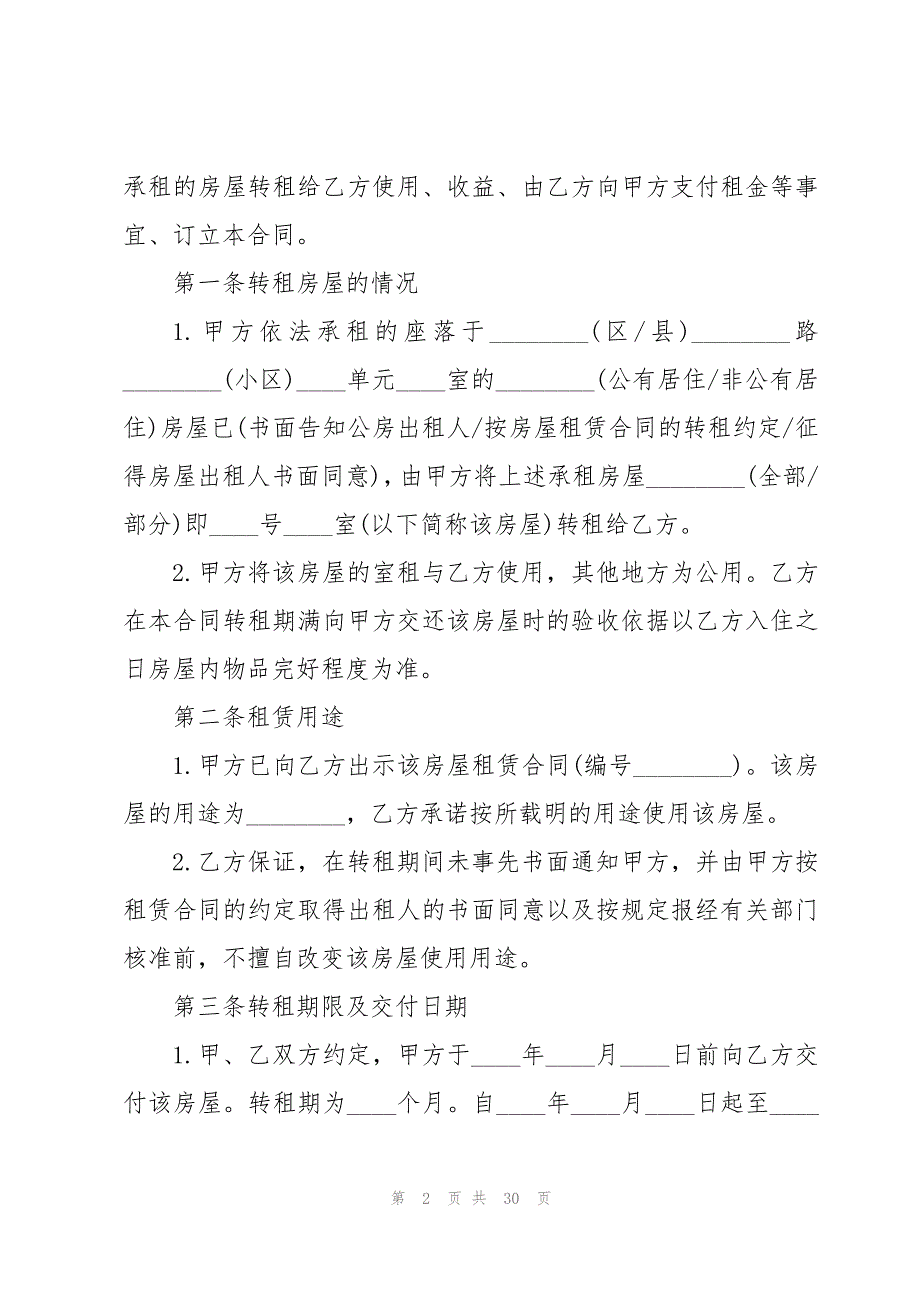 承租的房屋转租给乙方使用、收益、由乙方向甲方支付租金等事
宜、订立本合同。
第一条转租房屋的情况
1.甲方依法承租的座落于________(区/县)________路
________(小区)____单元____室的________(公有居住/非公有居
住)房屋已(书面告知公房出租人/按房屋租赁合同的转租约定/征
得房屋出租人书面同意),由甲方将上述承租房屋________(全部/
部分)即____号____室(以下简称该房屋)转租给乙方。
2.甲方将该房屋的室租与乙方使用，其他地方为公用。乙方
在本合同转租期满向甲方交还该房屋时的验收依据以乙方入住之
日房屋内物品完好程度为准。
第二条租赁用途
1.甲方已向乙方出示该房屋租赁合同(编号________)。该房
屋的用途为________，乙方承诺按所载明的用途使用该房屋。
2.乙方保证，在转租期间未事先书面通知甲方，并由甲方按
租赁合同的约定取得出租人的书面同意以及按规定报经有关部门
核准前，不擅自改变该房屋使用用途。
第三条转租期限及交付日期
1.甲、乙双方约定，甲方于____年____月____日前向乙方交
付该房屋。转租期为____个月。自____年____月____日起至____
第 2 页 共 30 页